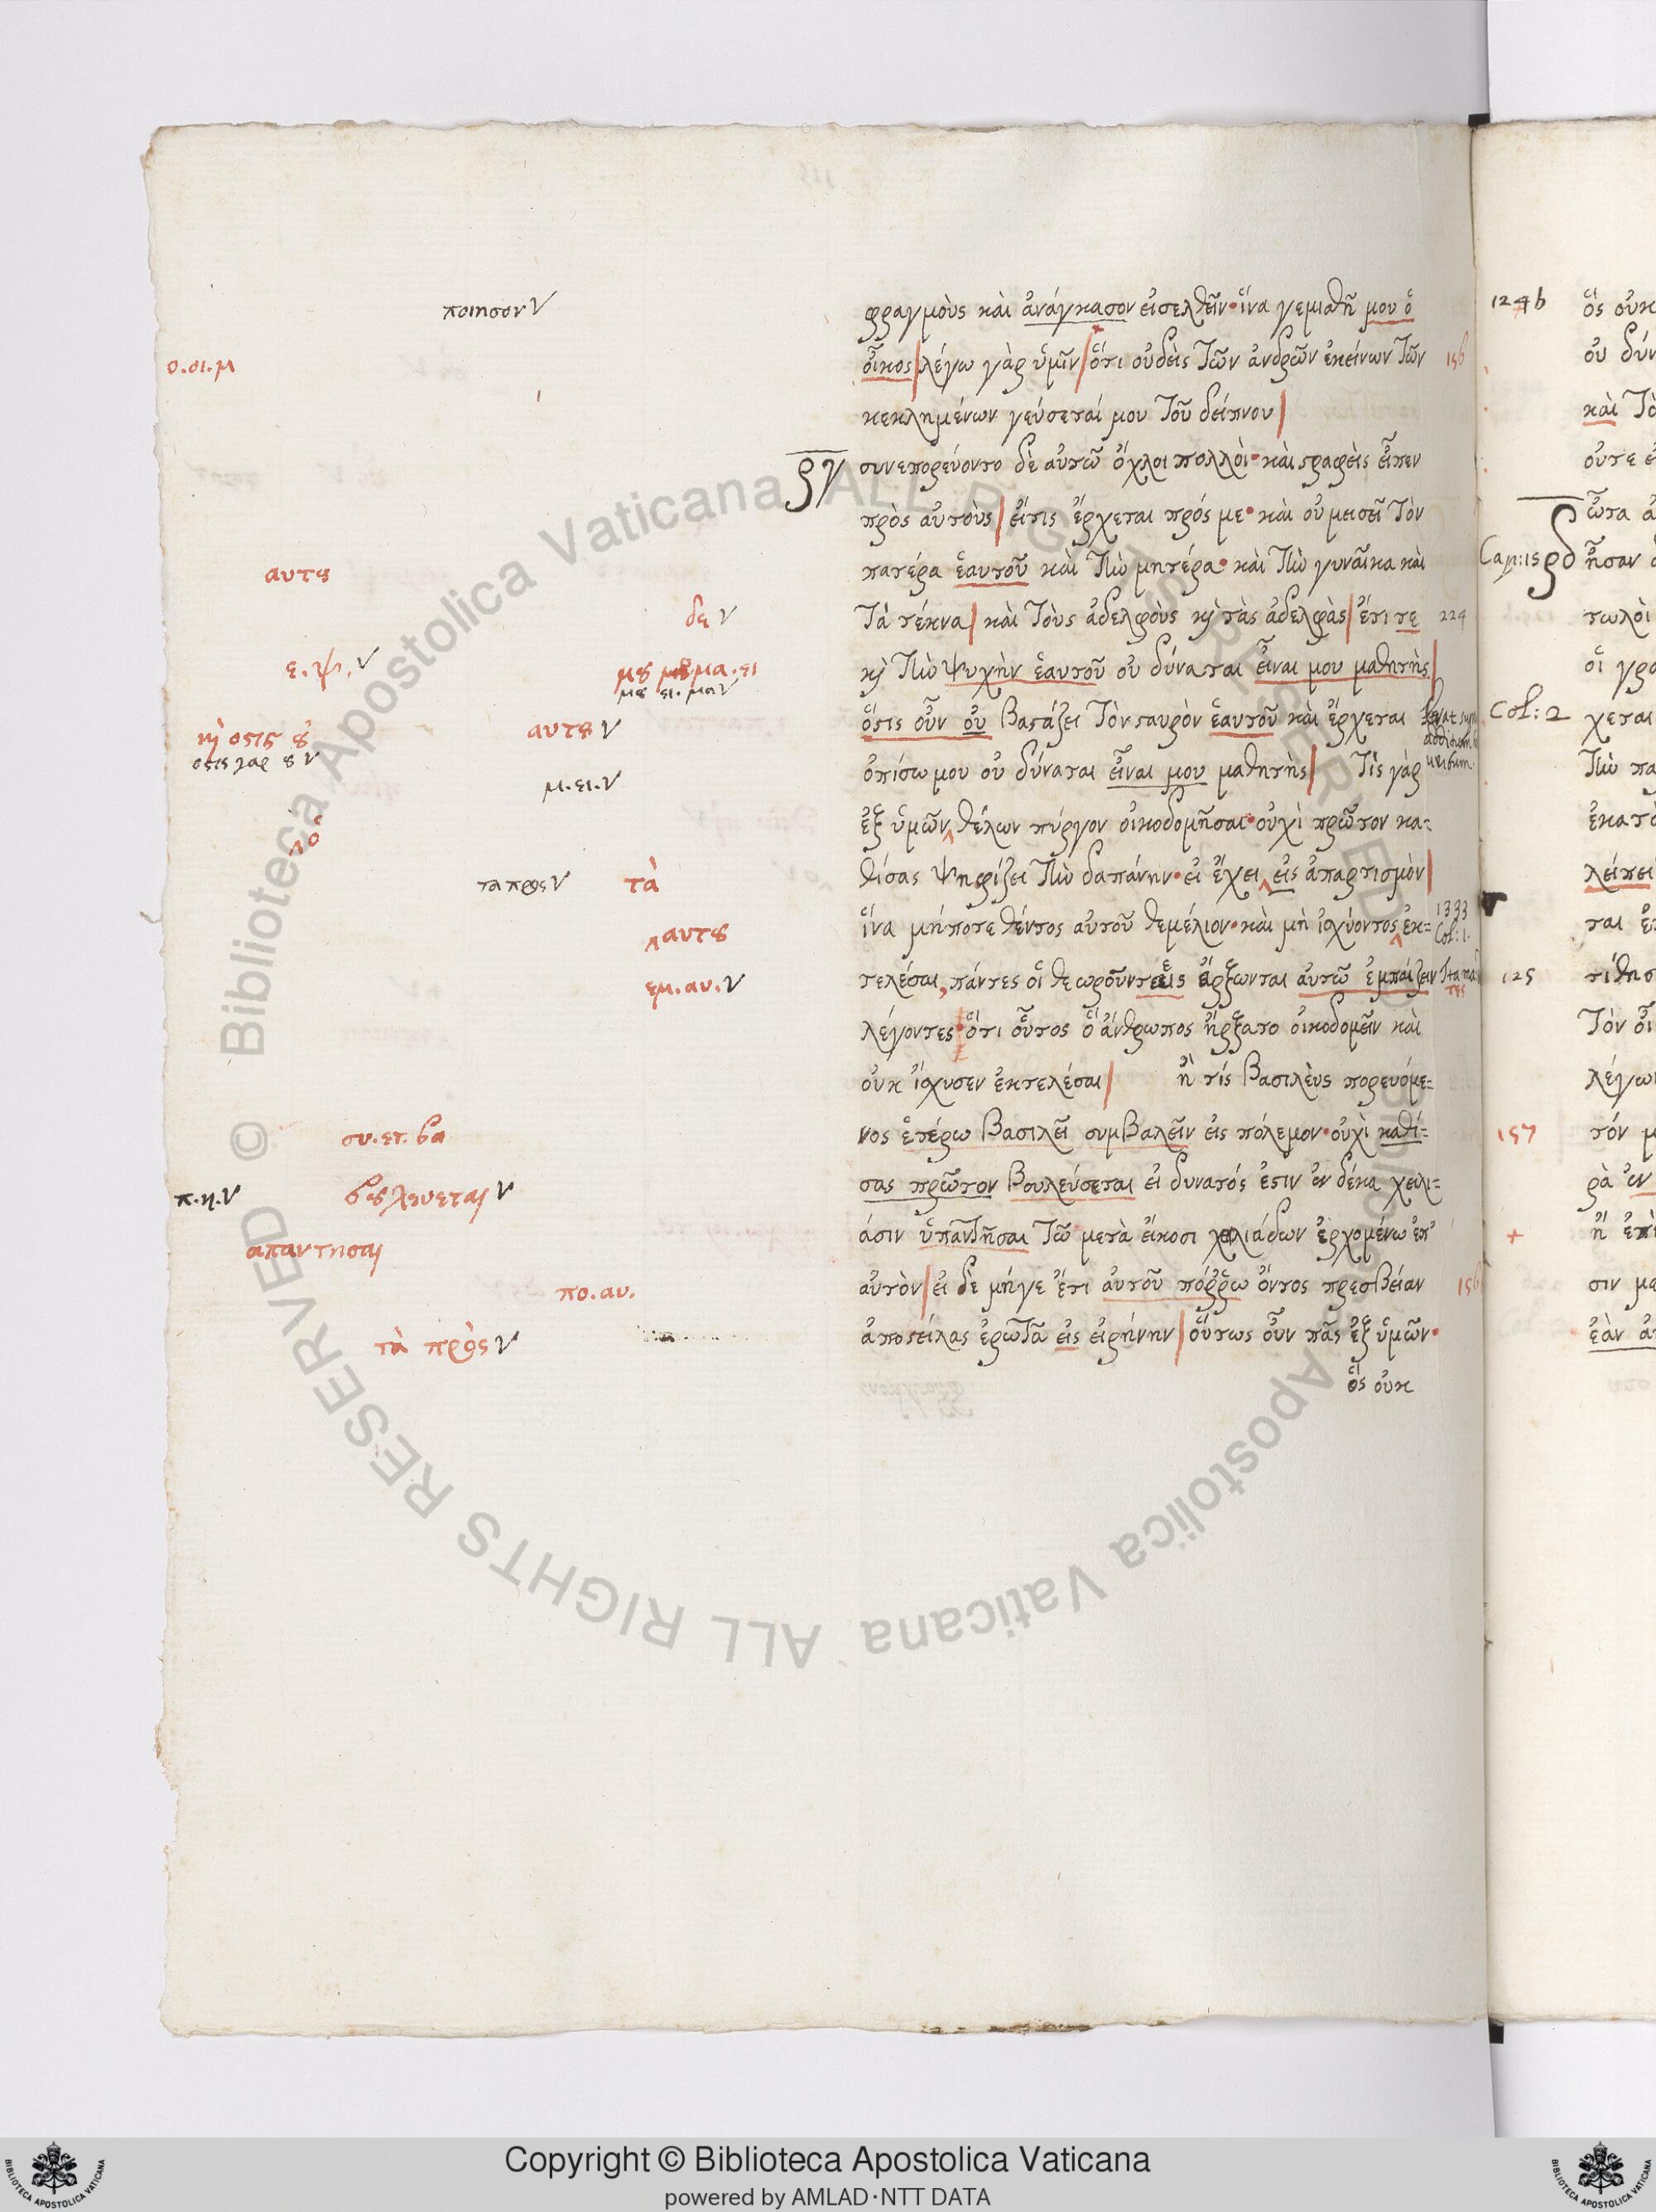 ποιησον ν
φραγμοὺς καὶ ἀνάγκασον εἰσελθεῖν· ἵνα γεμισθῆ μου ὁ
ο.οι.μ
οἶκος| λέγω γὰρ ὑμῖν| ὅτι οὐδεὶς τῶν ἀνδρῶν ἐκείνων τῶν
κεκλημένων γεύσεταί μου τοῦ δείπνου|
ργ
συνεπορεύοντο δὲ αὐτῶ ὄχλοι πολλοὶ· καὶ στραφεὶς εἶπεν
πρὸς αὐτοὺς| εἴτις ἔρχεται πρός με· καὶ οὐ μεισεῖ τὸν
αυτȣ
πατέρα ἑαυτοῦ καὶ τὴν μητέρα· καὶ τὴν γυναῖκα καὶ
δε ν
τὰ τέκνα| καὶ τοὺς ἀδελφοὺς κὶ τὰς ἀδελφὰς| ἔτι τε
224
ε.ψ. ν
μȣ ει.μα ν
κὶ τὴν ψυχὴν ἑαυτοῦ οὐ δύναται εἶναι μου μαθητὴς|
κὶ οστις ȣ
οστις γαρ ȣ ν
αυτȣ ν
ὅστις οὖν οὐ βαστάζει τὸν σταυρὸν ἑαυτοῦ καὶ ἔρχεται
μ.ει. ν
ὀπίσω μου οὐ δύναται εἶναι μου μαθητὴς| Τὶς γὰρ
uerbum
ὁ
ἐξ ὑμῶν θέλων πύργον οἰκοδομῆσαι· οὐχὶ πρῶτον κα=
τα προς ν
τὰ
θίσας ψηφίζει τὴν δαπάνην· εἰ ἔχει εἰς ἀπαρτισμὸν|
αυτȣ
ἵνα μήποτε θέντος αὐτοῦ θεμέλιον· καὶ μὴ ἰσχύοντος ἐκ=
1333
Col: 1.
εμ.αυ. ν
τελέσαι, πάντες οἱ θεωροῦντες ἄρξωνται αὐτῶ ἐμπαίζειν
λέγοντες· ὅτι οὗτος ὁ ἄνθρωπος ἤρξατο οἰκοδομεῖν καὶ
οὐκ ἴσχυσεν ἐκτελέσαι| ἢ τίς βασιλεὺς πορευόμε=
συ.ετ.βα
νος ἑτέρω βασιλεῖ συμβαλεῖν εἰς πόλεμον· οὐχὶ καθί=
π.η. ν
βȣλευεται ν
σας πρῶτον βουλεύσεται εἰ δυνατός ἐστιν ἐν δέκα χειλι=
απαντησαι
άσιν ὑπαντῆσαι τῶ μετὰ εἴκοσι χιλιάδων ἐρχομένω ἐπ'
πο.αυ.
αὐτὸν| εἰ δὲ μήγε ἔτι αὐτοῦ πόῤῥω ὄντος πρεσβείαν
τὰ πρὸς ν
ἀποστείλας ἐρωτᾶ εἰς εἰρήνην| οὕτως οὖν πᾶς ἐξ ὑμῶν·
ὃς οὐκ
124b
ὃς οὐκ
οὐ
καὶ
οὔτε
ὦτα
Cap: 15
ρδ
ἦσαν
τωλοὶ
οἱ
Col: 2
χεται
τὴν
λείπει
ται
125
Τὸν
157
τόν
ἢ ἐπὶ
σιν
ἐὰν
© Biblioteca Apostolica Vaticana ALL RIGHTS RESERVED
© Biblioteca Apostolica Vaticana ALL RIGHTS RESERVED
Copyright © Biblioteca Apostolica Vaticana
powered by AMLAD･NTT DATA
BIBLIOTECA APOSTOLICA VATICANA
BIBLIOTECA APOSTOLICA VATICANA